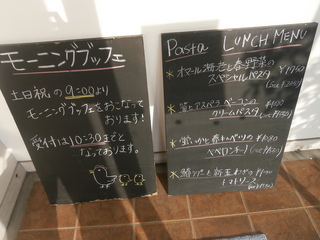 モーニングブッフェ
土日祝の9:00より
モーニングブッフェをおこなって
おります!
受付は10:30までと
なっております。
Pasta LUNCH MENU
オマール海老と春野菜の
スペシャルパスタ
アスパラ ベーコンの
クリームパスタ
春キャベツの
ペペロンチーノ
と新玉ねぎの
トマトソース